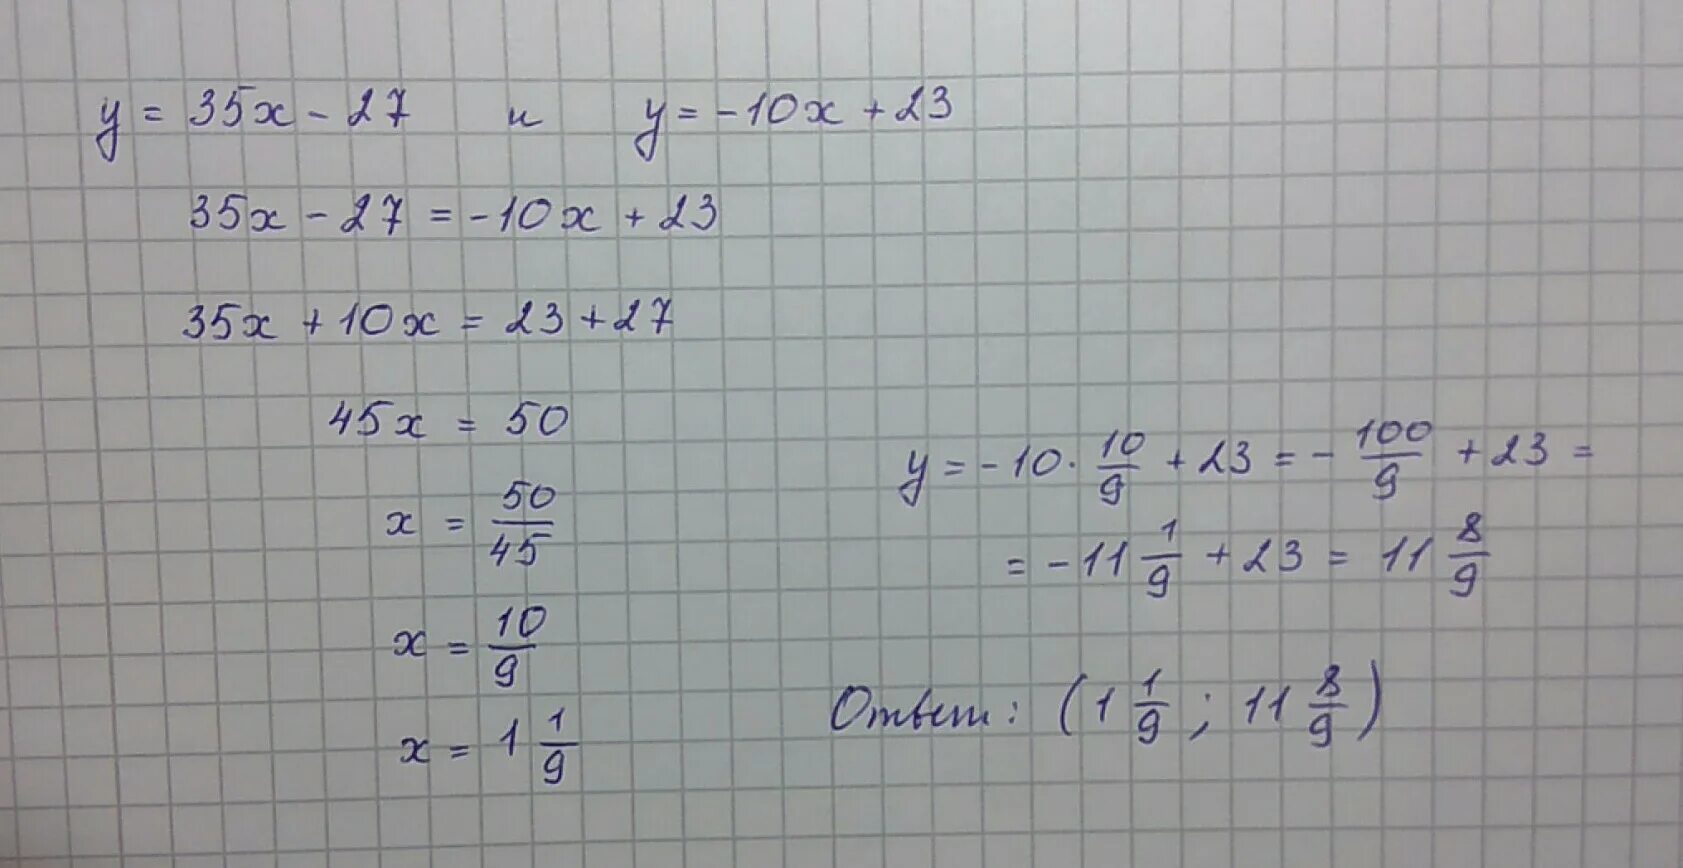 y = 35x - 27 и y = -10x + 23
35x - 27 = -10x + 23
35x + 10x = 23 + 27
45x = 50
x = 50/45
x = 10/9
x = 1 1/9
y = -10 · 10/9 + 23 = -100/9 + 23 =
= -11 1/9 + 23 = 11 8/9
Ответ: (1 1/9 ; 11 8/9)